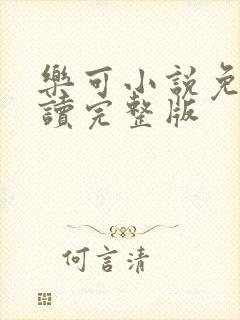 樂可小說免
讀完整版
何言清